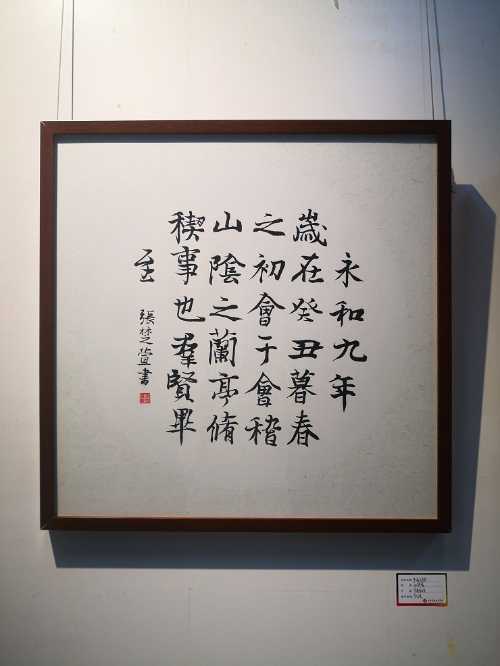 永和九年
歲在癸丑暮春
之初會于會稽
山陰之蘭亭脩
稧事也羣賢畢
至
張楚營書